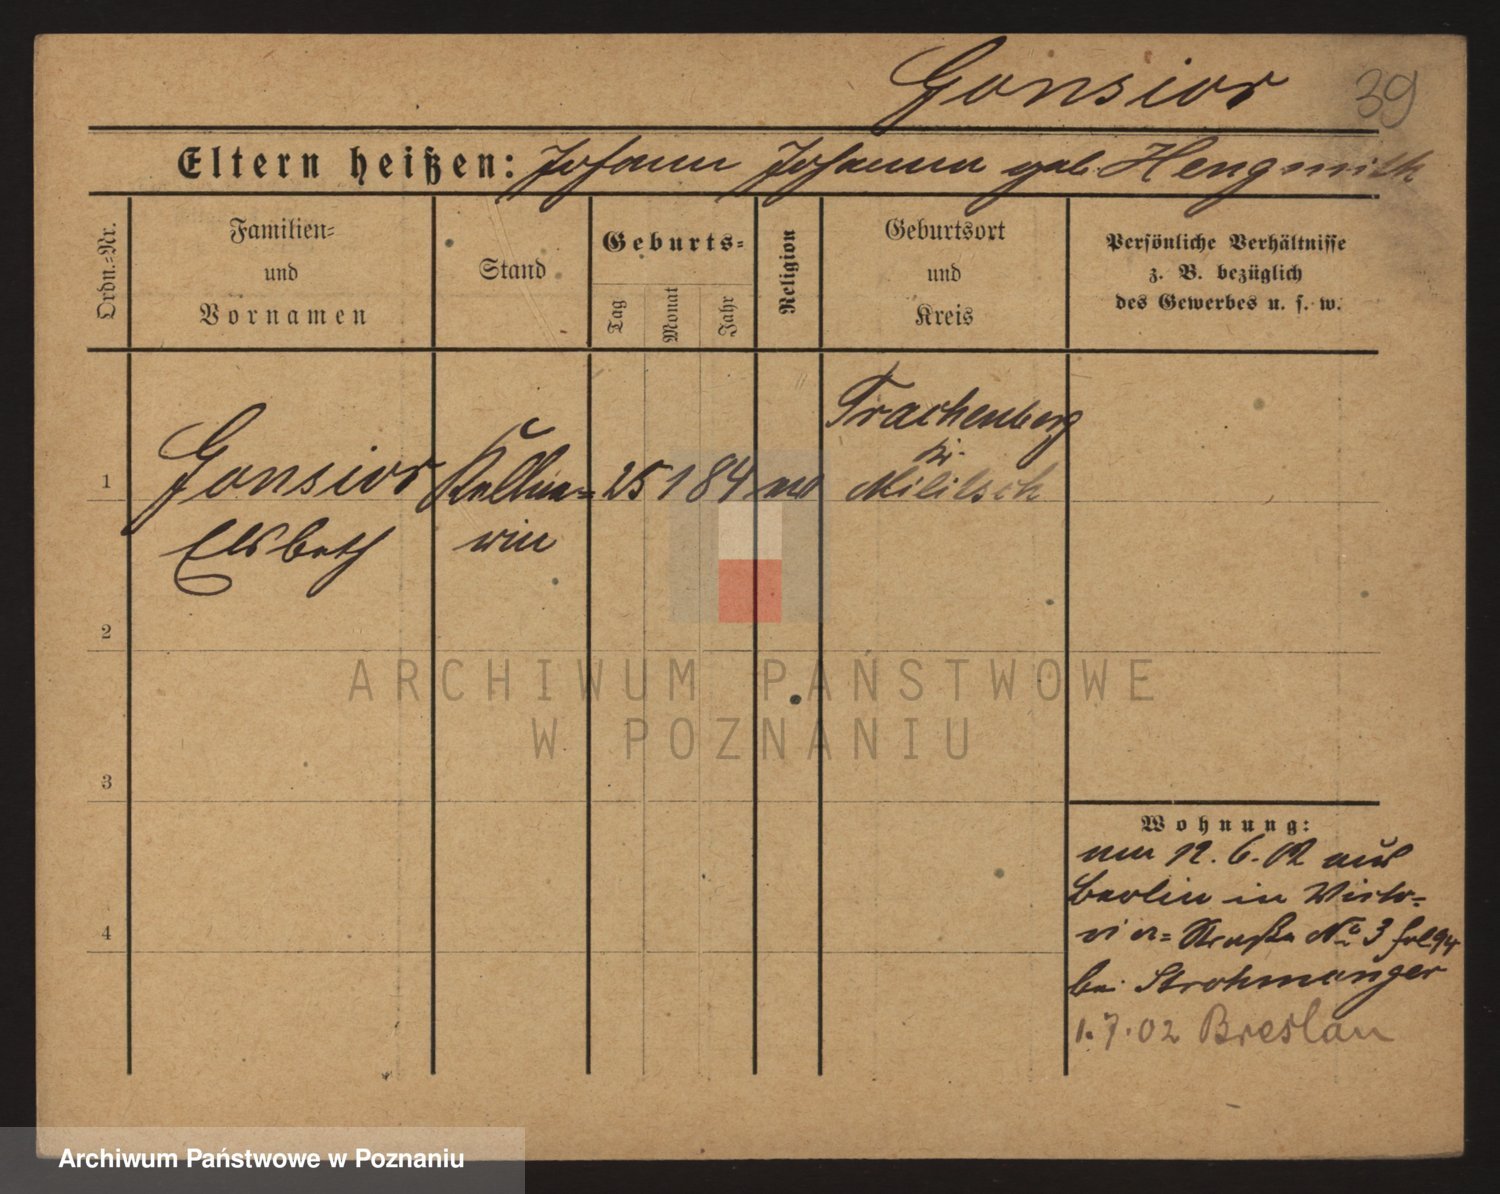 Gonsior 39
Eltern heißen: Johann Johanna geb.
Ordn.-Nr.
Familien-
und
Vornamen
Stand
Geburts-
Tag
Monat
Jahr
Religion
Geburtsort
und
Kreis
Persönliche Verhältnisse
z. B. bezüglich
des Gewerbes u. s. w.
1
Gonsior
Elsbeth
Kellne-
rin
25 1 84
Trachenberg
Kr.
Militsch
2
3
4
Wohnung:
12. 6. 02 aus
Berlin in Victo-
ria-Straße No 3 fol. 94
bei Strohmanger
1. 7. 02 Breslau
ARCHIWUM PAŃSTWOWE
W POZNANIU
Archiwum Państwowe w Poznaniu